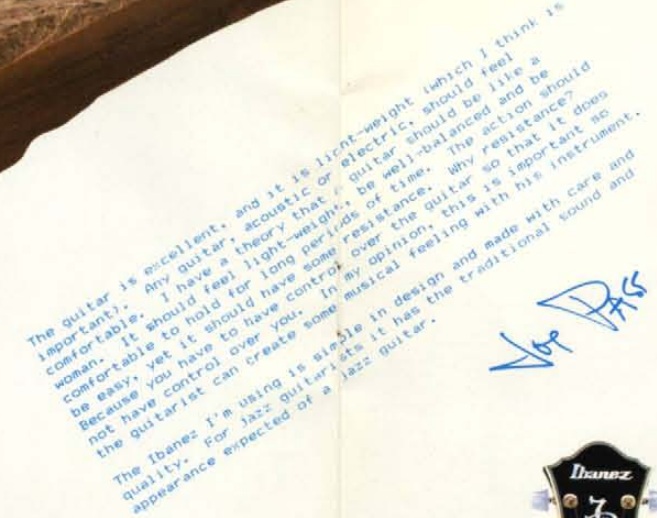 The guitar is excellent, and it is light-weight (which I think is
important). Any guitar, acoustic or electric, should feel
comfortable. I have a theory that a guitar should be like a
woman. It should feel light-weight, be well-balanced and be
comfortable to hold for long periods of time. The action should
be easy, yet it should have some resistance. Why resistance?
Because you have to have control over the guitar so that it does
not have control over you. In my opinion, this is important so
the guitarist can create some musical feeling with his instrument.
The Ibanez I'm using is simple in design and made with care and
quality. For jazz guitarists it has the traditional sound and
appearance expected of a jazz guitar.
Joe Pass
Ibanez